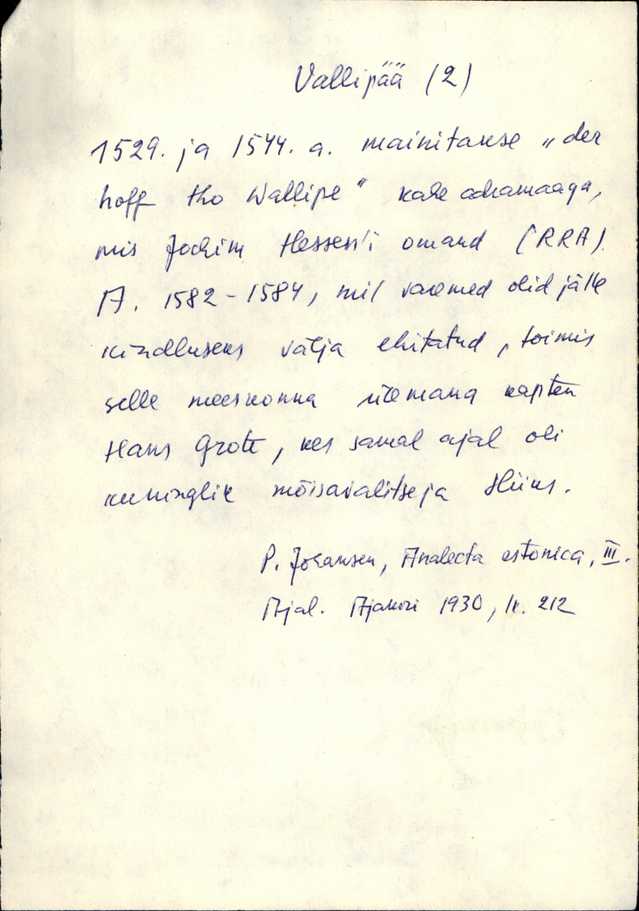 Vallipää (2)
1529. ja 1544. a. mainitakse „der
hoff tho Wallipe" kahe adramaaga,
mis Jochim Hessen'i omand (RRA).
A. 1582-1584, mil varemed olid jälle
kindluseks välja ehitatud, toimis
selle meeskonna ülemana kapten
Hans Grote, kes samal ajal oli
kuninglik mõisavalitseja Hiius.
P. Johansen, Analecta estonica, III.
Ajal. Ajakiri 1930, lk. 212